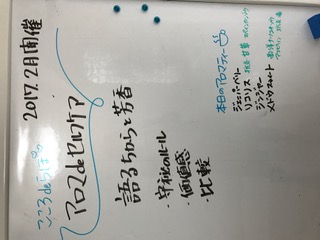 2017.2月開催
こころdeらぼ
アロマdeセルフケア
語るちからと芳香
・守秘のルール
・価値感
・比較
本日のアロマティー
ジュニパーベリー
リコリス
ジンジャー
メドウスイート